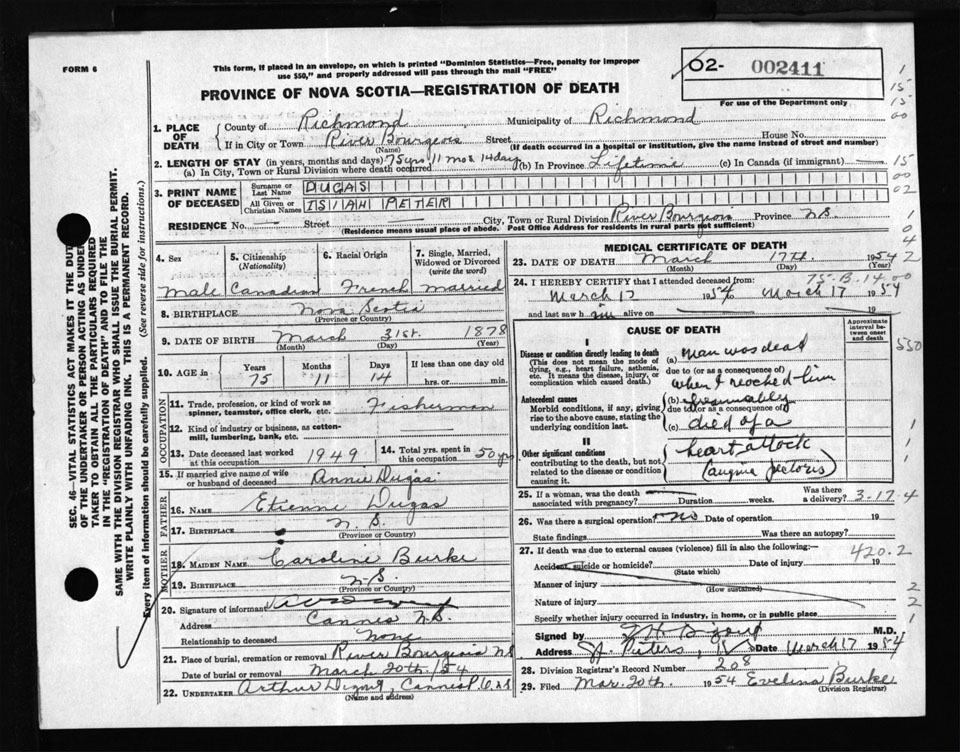 FORM 6
This form, if placed in an envelope, on which is printed "Dominion Statistics—Free, penalty for improper
use $50," and properly addressed will pass through the mail "FREE"
O2- 002411
For use of the Department only
PROVINCE OF NOVA SCOTIA—REGISTRATION OF DEATH
1. PLACE OF DEATH
County of Richmond Municipality of Richmond
If in City or Town River Bourgeois Street House No.
(Name) (If death occurred in a hospital or institution, give the name instead of street and number)
2. LENGTH OF STAY (in years, months and days) 75 yrs 11 mos 14 days (b) In Province Lifetime (c) In Canada (if immigrant)
(a) In City, Town or Rural Division where death occurred
3. PRINT NAME OF DECEASED
Surname or Last Name DUGAS
All Given or Christian Names ISIAH PETER
RESIDENCE No. Street City, Town or Rural Division River Bourgeois Province N.S.
(Residence means usual place of abode. Post Office Address for residents in rural parts not sufficient)
4. Sex Male
5. Citizenship (Nationality) Canadian
6. Racial Origin French
7. Single, Married, Widowed or Divorced (write the word) Married
8. BIRTHPLACE Nova Scotia
(Province or Country)
9. DATE OF BIRTH March 31st. 1878
(Month) (Day) (Year)
10. AGE in Years 75 Months 11 Days 14 If less than one day hrs. or min.
OCCUPATION
11. Trade, profession, or kind of work as Fisherman
spinner, teamster, office clerk, etc.
12. Kind of industry or business, as cotton-
mill, lumbering, bank, etc.
13. Date deceased last worked at this occupation 1949
14. Total yrs. spent in this occupation 50 yrs
15. If married give name of wife or husband of deceased Annie Dugas
FATHER
16. NAME Etienne Dugas
17. BIRTHPLACE N.S.
(Province or Country)
MOTHER
18. MAIDEN NAME Caroline Burke
19. BIRTHPLACE N.S.
(Province or Country)
20. Signature of informant
Address Cannes N.S.
Relationship to deceased None
21. Place of burial, cremation or removal River Bourgeois N.S
Date of burial or removal March 20th /54
22. UNDERTAKER Arthur
(Name and address)
MEDICAL CERTIFICATE OF DEATH
23. DATE OF DEATH March 17th. 1954
(Month) (Day) (Year)
24. I HEREBY CERTIFY that I attended deceased from:
March 17 1954 to March 17 1954
and last saw h im alive on 19
CAUSE OF DEATH
Approximate interval between onset and death
I
Disease or condition directly leading to death
(This does not mean the mode of dying, e.g., heart failure, asthenia, etc. It means the disease, injury, or complication which caused death.)
(a) Man was dead
due to (or as a consequence of)
when I reached him
Antecedent causes
Morbid conditions, if any, giving rise to the above cause, stating the underlying condition last.
(b) Presumably
due to (or as a consequence of)
(c) died of a
II
Other significant conditions
contributing to the death, but not related to the disease or condition causing it.
heart attack
(angina pectoris)
25. If a woman, was the death associated with pregnancy? Duration weeks. Was there a delivery? 3-17.4
26. Was there a surgical operation? No Date of operation 19
State findings Was there an autopsy?
27. If death was due to external causes (violence) fill in also the following:— 420.2
Accident, suicide or homicide? Date of injury 19
(State which)
Manner of injury
(How sustained)
Nature of injury
Specify whether injury occurred in industry, in home, or in public place
Signed by M.D.
Address St. Peters, Date March 17 1954
28. Division Registrar's Record Number 208
29. Filed Mar. 20th. 1954 Evelina Burke
(Division Registrar)
SEC. 46—VITAL STATISTICS ACT MAKES IT THE DUTY
OF THE UNDERTAKER OR PERSON ACTING AS UNDERTAKER TO OBTAIN ALL THE PARTICULARS REQUIRED
IN THE "REGISTRATION OF DEATH" AND TO FILE THE
SAME WITH THE DIVISION REGISTRAR WHO SHALL ISSUE THE BURIAL PERMIT.
WRITE PLAINLY WITH UNFADING INK. THIS IS A PERMANENT RECORD.
Every item of information should be carefully supplied. (See reverse side for instructions.)